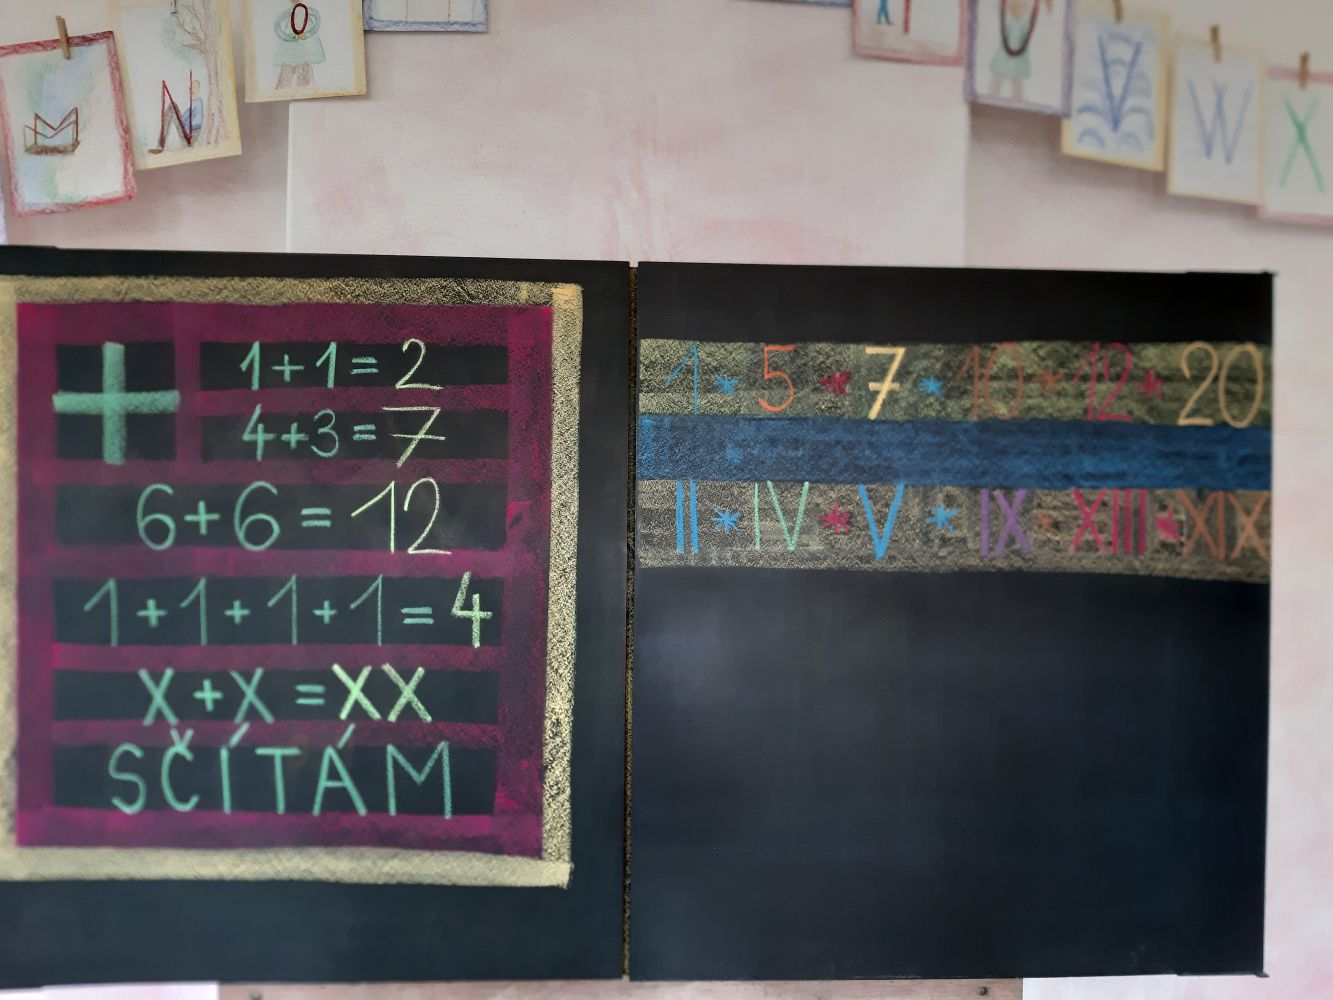 M N O U V W X
+
1+1=2
4+3=7
6+6=12
1+1+1+1=4
X+X=XX
SČÍTÁM
1 * 5 * 7 * 10 * 12 * 20
II * IV * V * IX * XIII * XIX